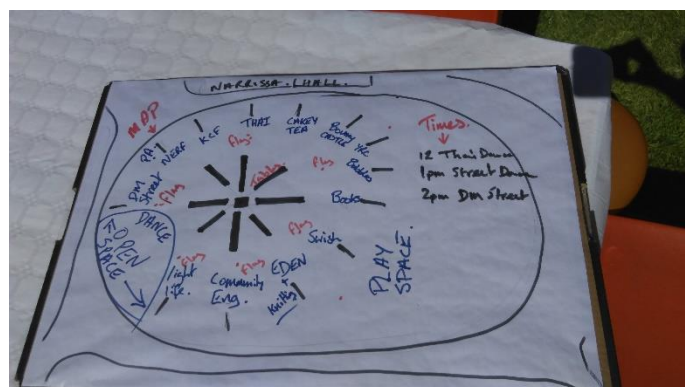 NARRISSA HALL.
MAP
PA
NERF
KCF
THAI
CAKEY
TEA
BOUNCY
CASTLE
YKC
Bubbles
Books
Swish
EDEN
x
Knitty
Community
Eng.
Light
life.
DM
Street
DANCE
OPEN
SPACE
Flag
Flag
Flag
Flag
Flag
Flag
Tables
PLAY
SPACE.
Times.
12 Thai Dance
1pm Street Dance
2pm DM Street